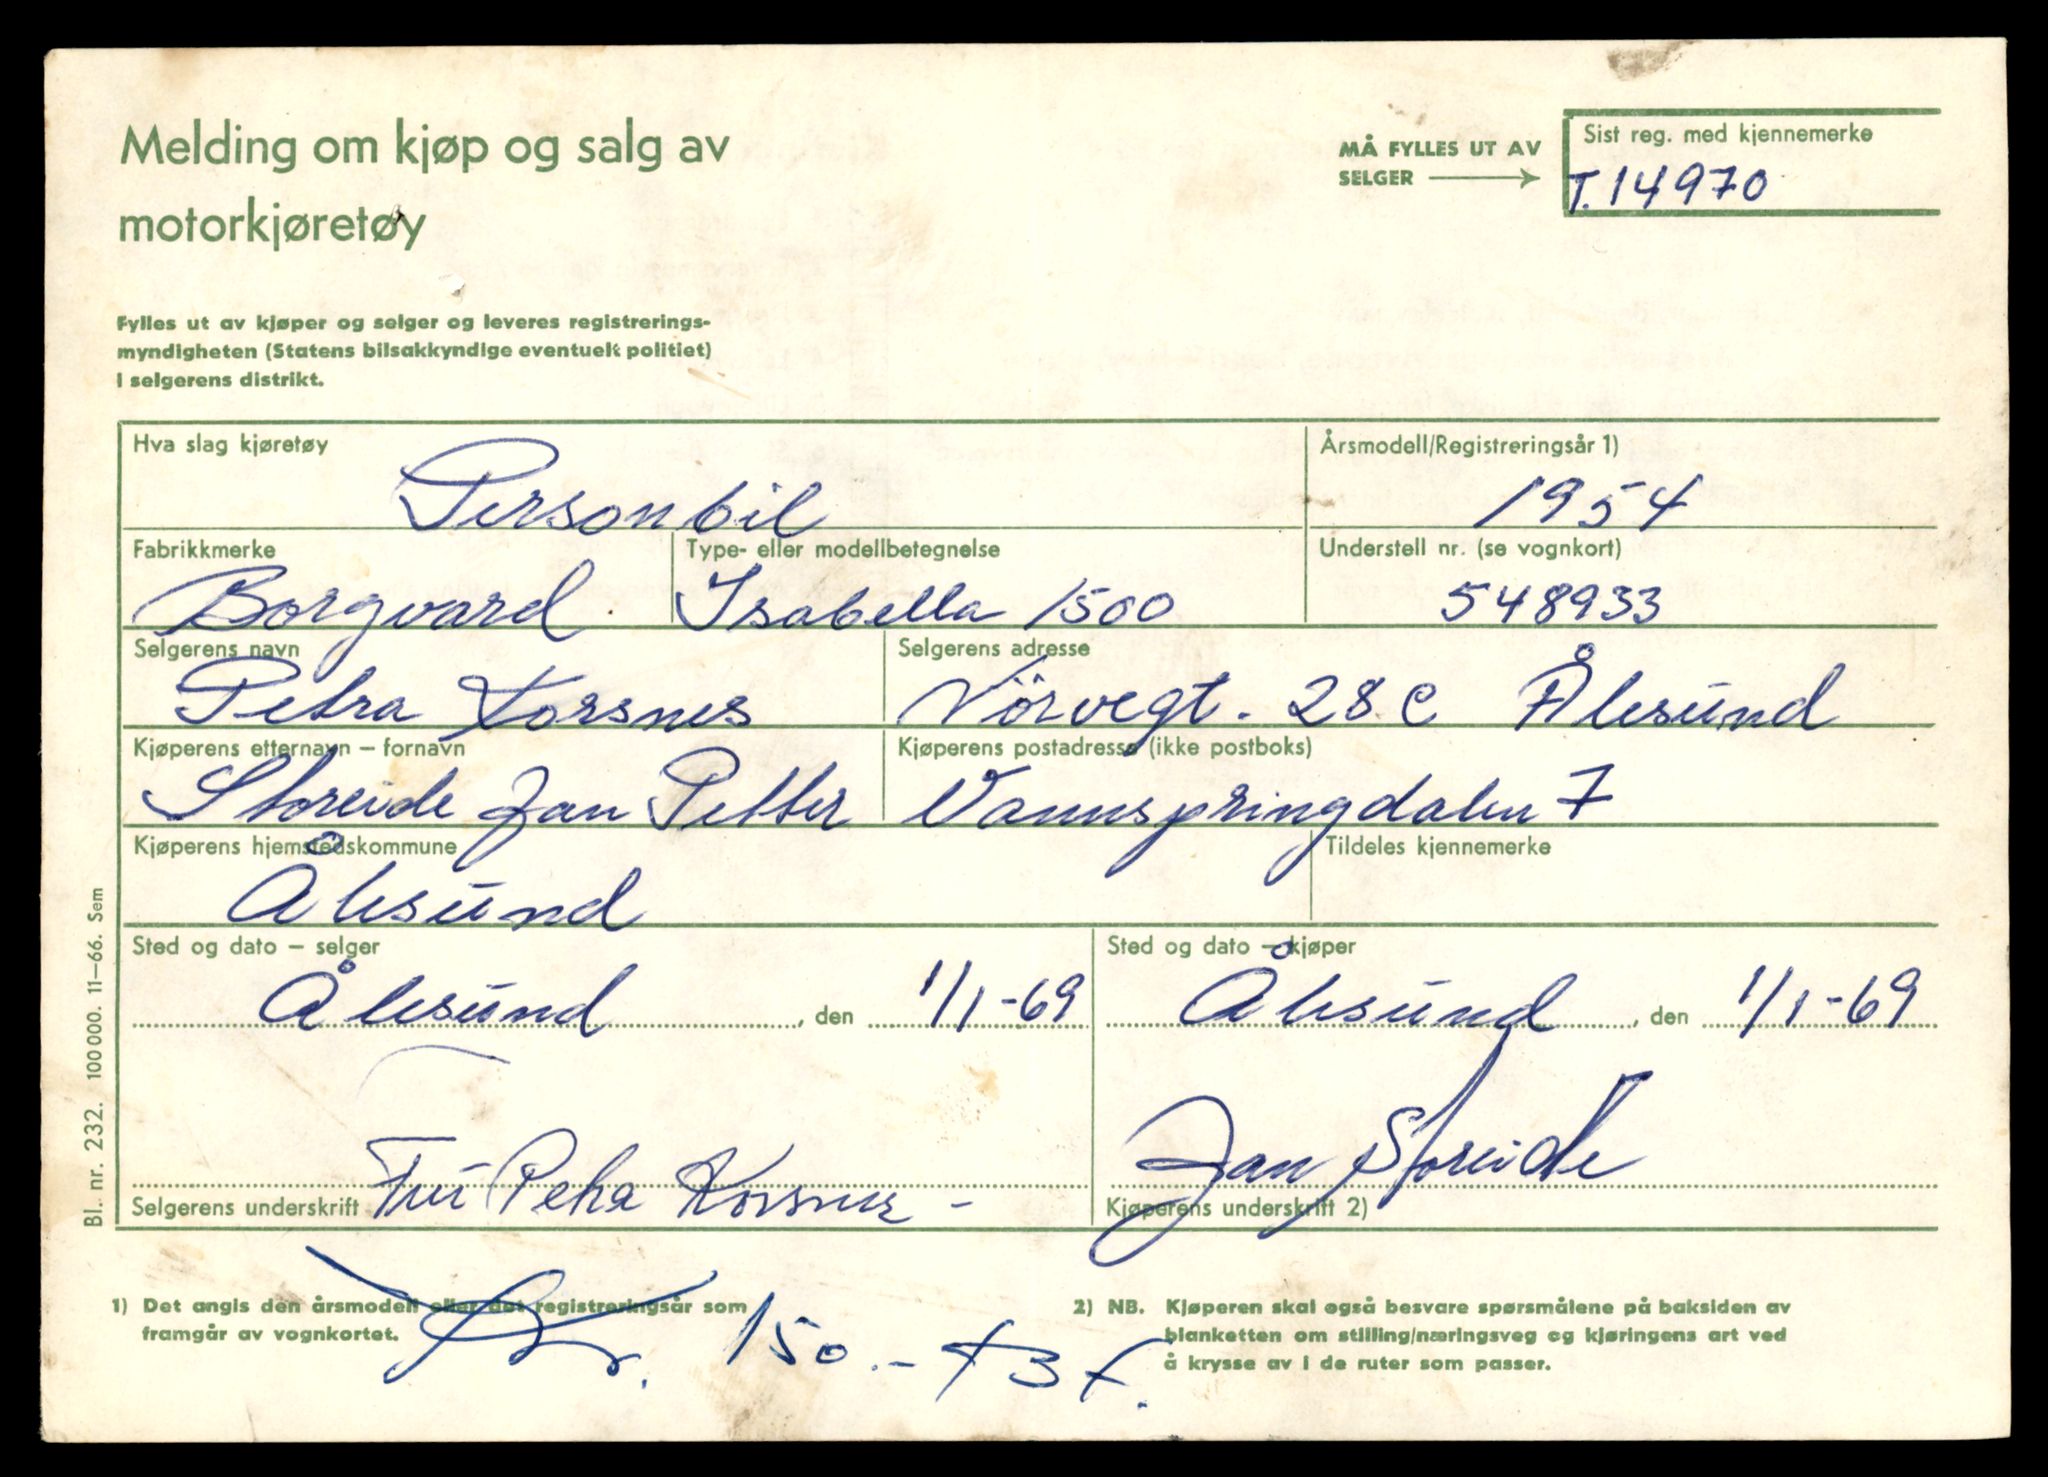 Melding om kjøp og salg av
motorkjøretøy
MÅ FYLLES UT AV
SELGER
Sist reg. med kjennemerke
T.14970
Fylles ut av kjøper og selger og leveres registrerings-
myndigheten (Statens bilsakkyndige eventuelt politiet)
i selgerens distrikt.
Hva slag kjøretøy
Personbil
Årsmodell/Registreringsår 1)
1954
Fabrikkmerke
Borgvard
Type- eller modellbetegnelse
Isabella 1500
Understell nr. (se vognkort)
548933
Selgerens navn
Petra Korsnes
Selgerens adresse
Nörvegt. 28 C Ålesund
Kjøperens etternavn – fornavn
Storeide Jan Petter
Kjøperens postadresse (ikke postboks)
Vannspringdalen 7
Kjøperens hjemstedskommune
Ålesund
Tildeles kjennemerke
Sted og dato – selger
Ålesund, den 1/1-69
Sted og dato – kjøper
Ålesund, den 1/1-69
Selgerens underskrift Fru Petra Korsnes -
Jan Storeide
Kjøperens underskrift 2)
1) Det angis den årsmodell eller det registreringsår som
framgår av vognkortet.
Kr. 150.-
2) NB. Kjøperen skal også besvare spørsmålene på baksiden av
blanketten om stilling/næringsveg og kjøringens art ved
å krysse av i de ruter som passer.
Bl. nr. 232. 100 000. 11–66. Sem